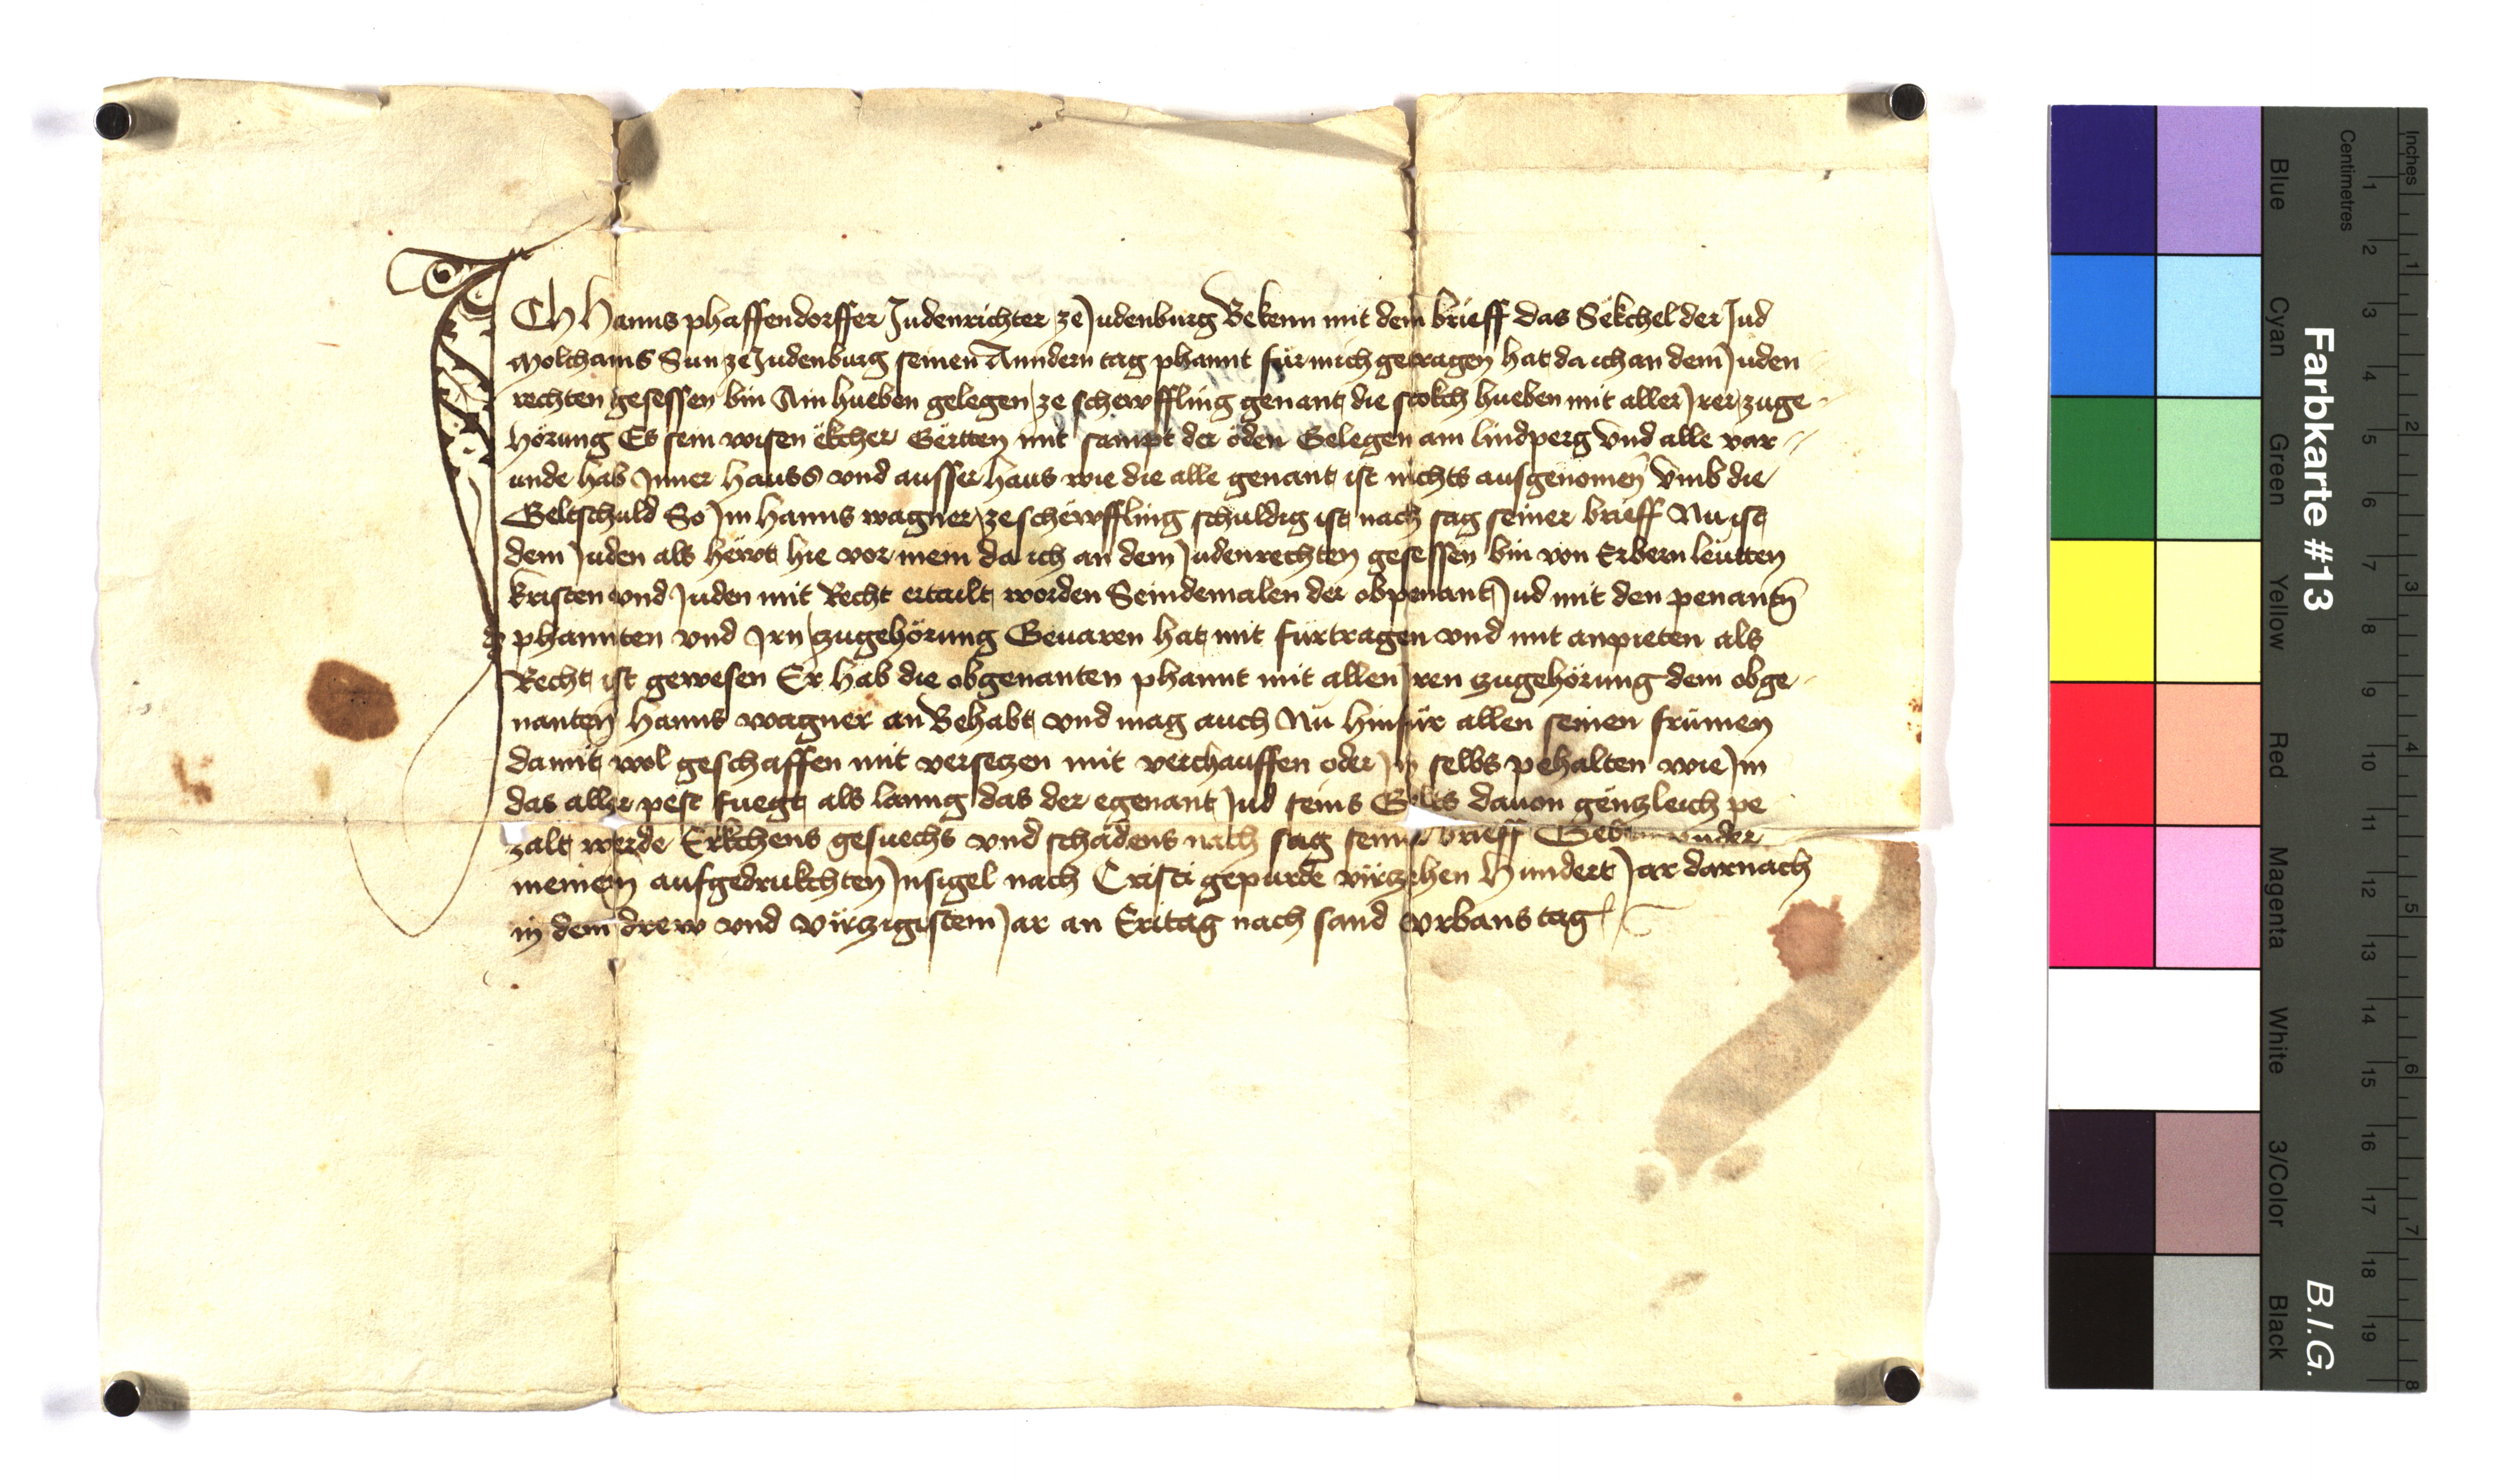 ICh Hanns phaffendorffer Judenrichter ze Judenburg Bekenn mit dem brieff das Sëkchel der Jud
Molchams Sun ze Judenburg seinen Anndern tag phannt für mich getragen hat da ich an dem Juden
rechten gesessen bin Ain hueben gelegen ze schewffling genant die stokch hueben mit aller Irer zuge
hörung Es sein wisen ëkcher Gërtten mit sampt der öden Gelegen am lindperg vnd alle var
unde hab Inner hauss vnd ausser haus wie die alle genant ist nichts ausgenomen vmb die
Geltschuld So Im hanns wagner ze schëwffling schuldig ist nach sag seiner brieff Nu ist
dem Juden als hëwt hie vor mein da ich an dem Judenrechten gesessen bin von Erbern leutten
kristen vnd Juden mit Recht ertailt worden Seindemalen der obpenant Jud mit den penantn
phannten vnd Irn zugehörung Geuaren hat mit fürtragen vnd mit anpieten als
Recht ist gewesen Er hab die obgenanten phannt mit allen Iren zugehörung dem obge
nanten hanns wagner an Behabt vnd mag auch Nu hinfür allen seinen frümen
damit wol geschaffen mit versetzen mit verchauffen oder In selbs pehalten wie Im
das aller pest fuegt als lanng das der egenant Jud seins Gelts dauon gënzleich pe
zalt werde Erkchens gesuechs vnd schadens nach sag seiner brieff Geben vnder
meinem aufgedrukchten Insigel nach Cristi gepurde virzehen Hundert Jar darnach
in dem drew vnd virzigistem Jar an Eritag nach sand vrbans tag
Farbkarte #13
B.I.G.
Centimetres
Inches
Blue
Cyan
Green
Yellow
Red
Magenta
White
3/Color
Black
1 2 3 4 5 6 7 8 9 10 11 12 13 14 15 16 17 18 19
1 2 3 4 5 6 7 8